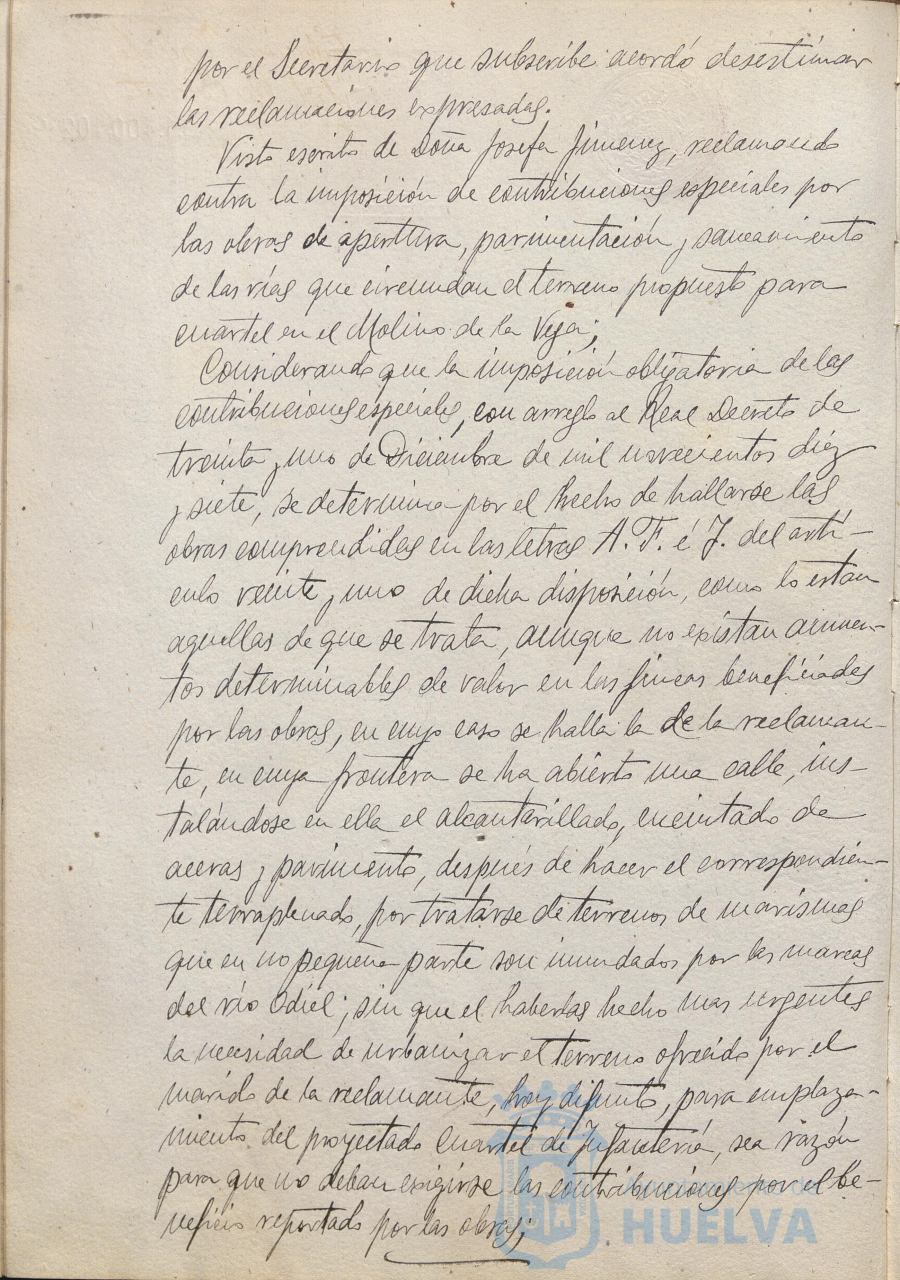 por el Secretario que subscribe acordó desestimar
las reclamaciones expresadas.
Visto escrito de Doña Josefa Jimenez, reclamando
contra la imposición de contribuciones especiales por
las obras de apertura, pavimentación y saneamiento
de las vías que circundan el terreno propuesto para
cuartel en el Molino de la Vega;
Considerando que la imposición obligatoria de las
contribuciones especiales, con arreglo al Real Decreto de
treinta y uno de Diciembre de mil novecientos diez
y siete, se determina por el hecho de hallarse las
obras comprendidas en las letras A. F. é J. del artí-
culo veinte y uno de dicha disposición, como lo estan
aquellas de que se trata, aunque no existan aumen-
tos determinables de valor en las fincas beneficiadas
por las obras, en cuyo caso se halla la de la reclaman-
te, en cuya frontera se ha abierto una calle, ins-
talándose en ella el alcantarillado, encintado de
aceras y pavimento, después de hacer el correspondien-
te terraplenado, por tratarse de terrenos de marismas
que en no pequeña parte son inundados por las mareas
del río Odiel; sin que el haberlas hecho mas urgentes
la necesidad de urbanizar el terreno ofrecido por el
marido de la reclamante, hoy difunto, para emplaza-
miento del proyectado Cuartel de Infantería, sea razón
para que no deban exigirse las contribuciones por el be-
neficio reportado por las obras;
HUELVA